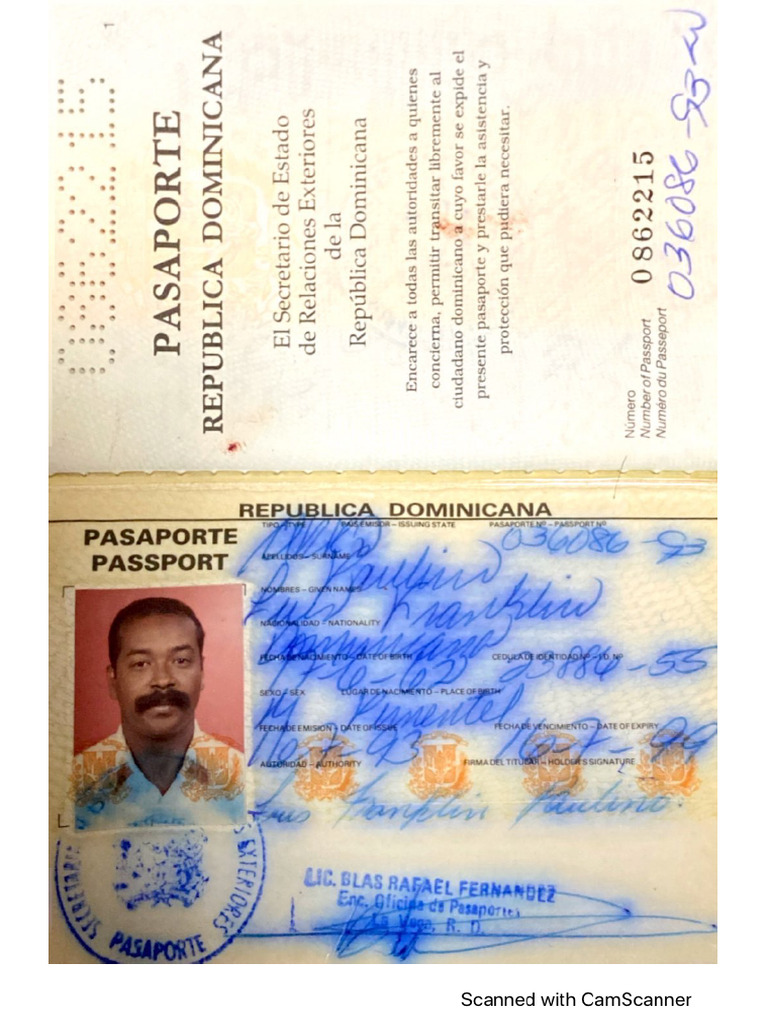 0862215
1
PASAPORTE
REPUBLICA DOMINICANA
El Secretario de Estado
de Relaciones Exteriores
de la
República Dominicana
Encarece a todas las autoridades a quienes
concierna, permitir transitar libremente al
ciudadano dominicano a cuyo favor se expide el
presente pasaporte y prestarle la asistencia y
protección que pudiera necesitar.
Número
Number of Passport
Numéro du Passeport
0862215
036086-93
REPUBLICA DOMINICANA
PASAPORTE
PASSPORT
TIPO – TYPE
PAIS EMISOR – ISSUING STATE
PASAPORTE Nº – PASSPORT Nº
036086-93
APELLIDOS – SURNAME
Paulino
NOMBRES – GIVEN NAMES
Luis Franklin
NACIONALIDAD – NATIONALITY
Dominicana
FECHA DE NACIMIENTO – DATE OF BIRTH
CEDULA DE IDENTIDAD Nº – I.D. Nº
-6-62
-55
SEXO – SEX
LUGAR DE NACIMIENTO – PLACE OF BIRTH
M Pimentel
FECHA DE EMISION – DATE OF ISSUE
FECHA DE VENCIMIENTO – DATE OF EXPIRY
AUTORIDAD – AUTHORITY
FIRMA DEL TITULAR – HOLDER'S SIGNATURE
Luis Franplin Paulino
EXTERIORES
PASAPORTE
LIC. BLAS RAFAEL FERNANDEZ
Enc. Oficina de Pasaportes
La Vega, R. D.
Scanned with CamScanner